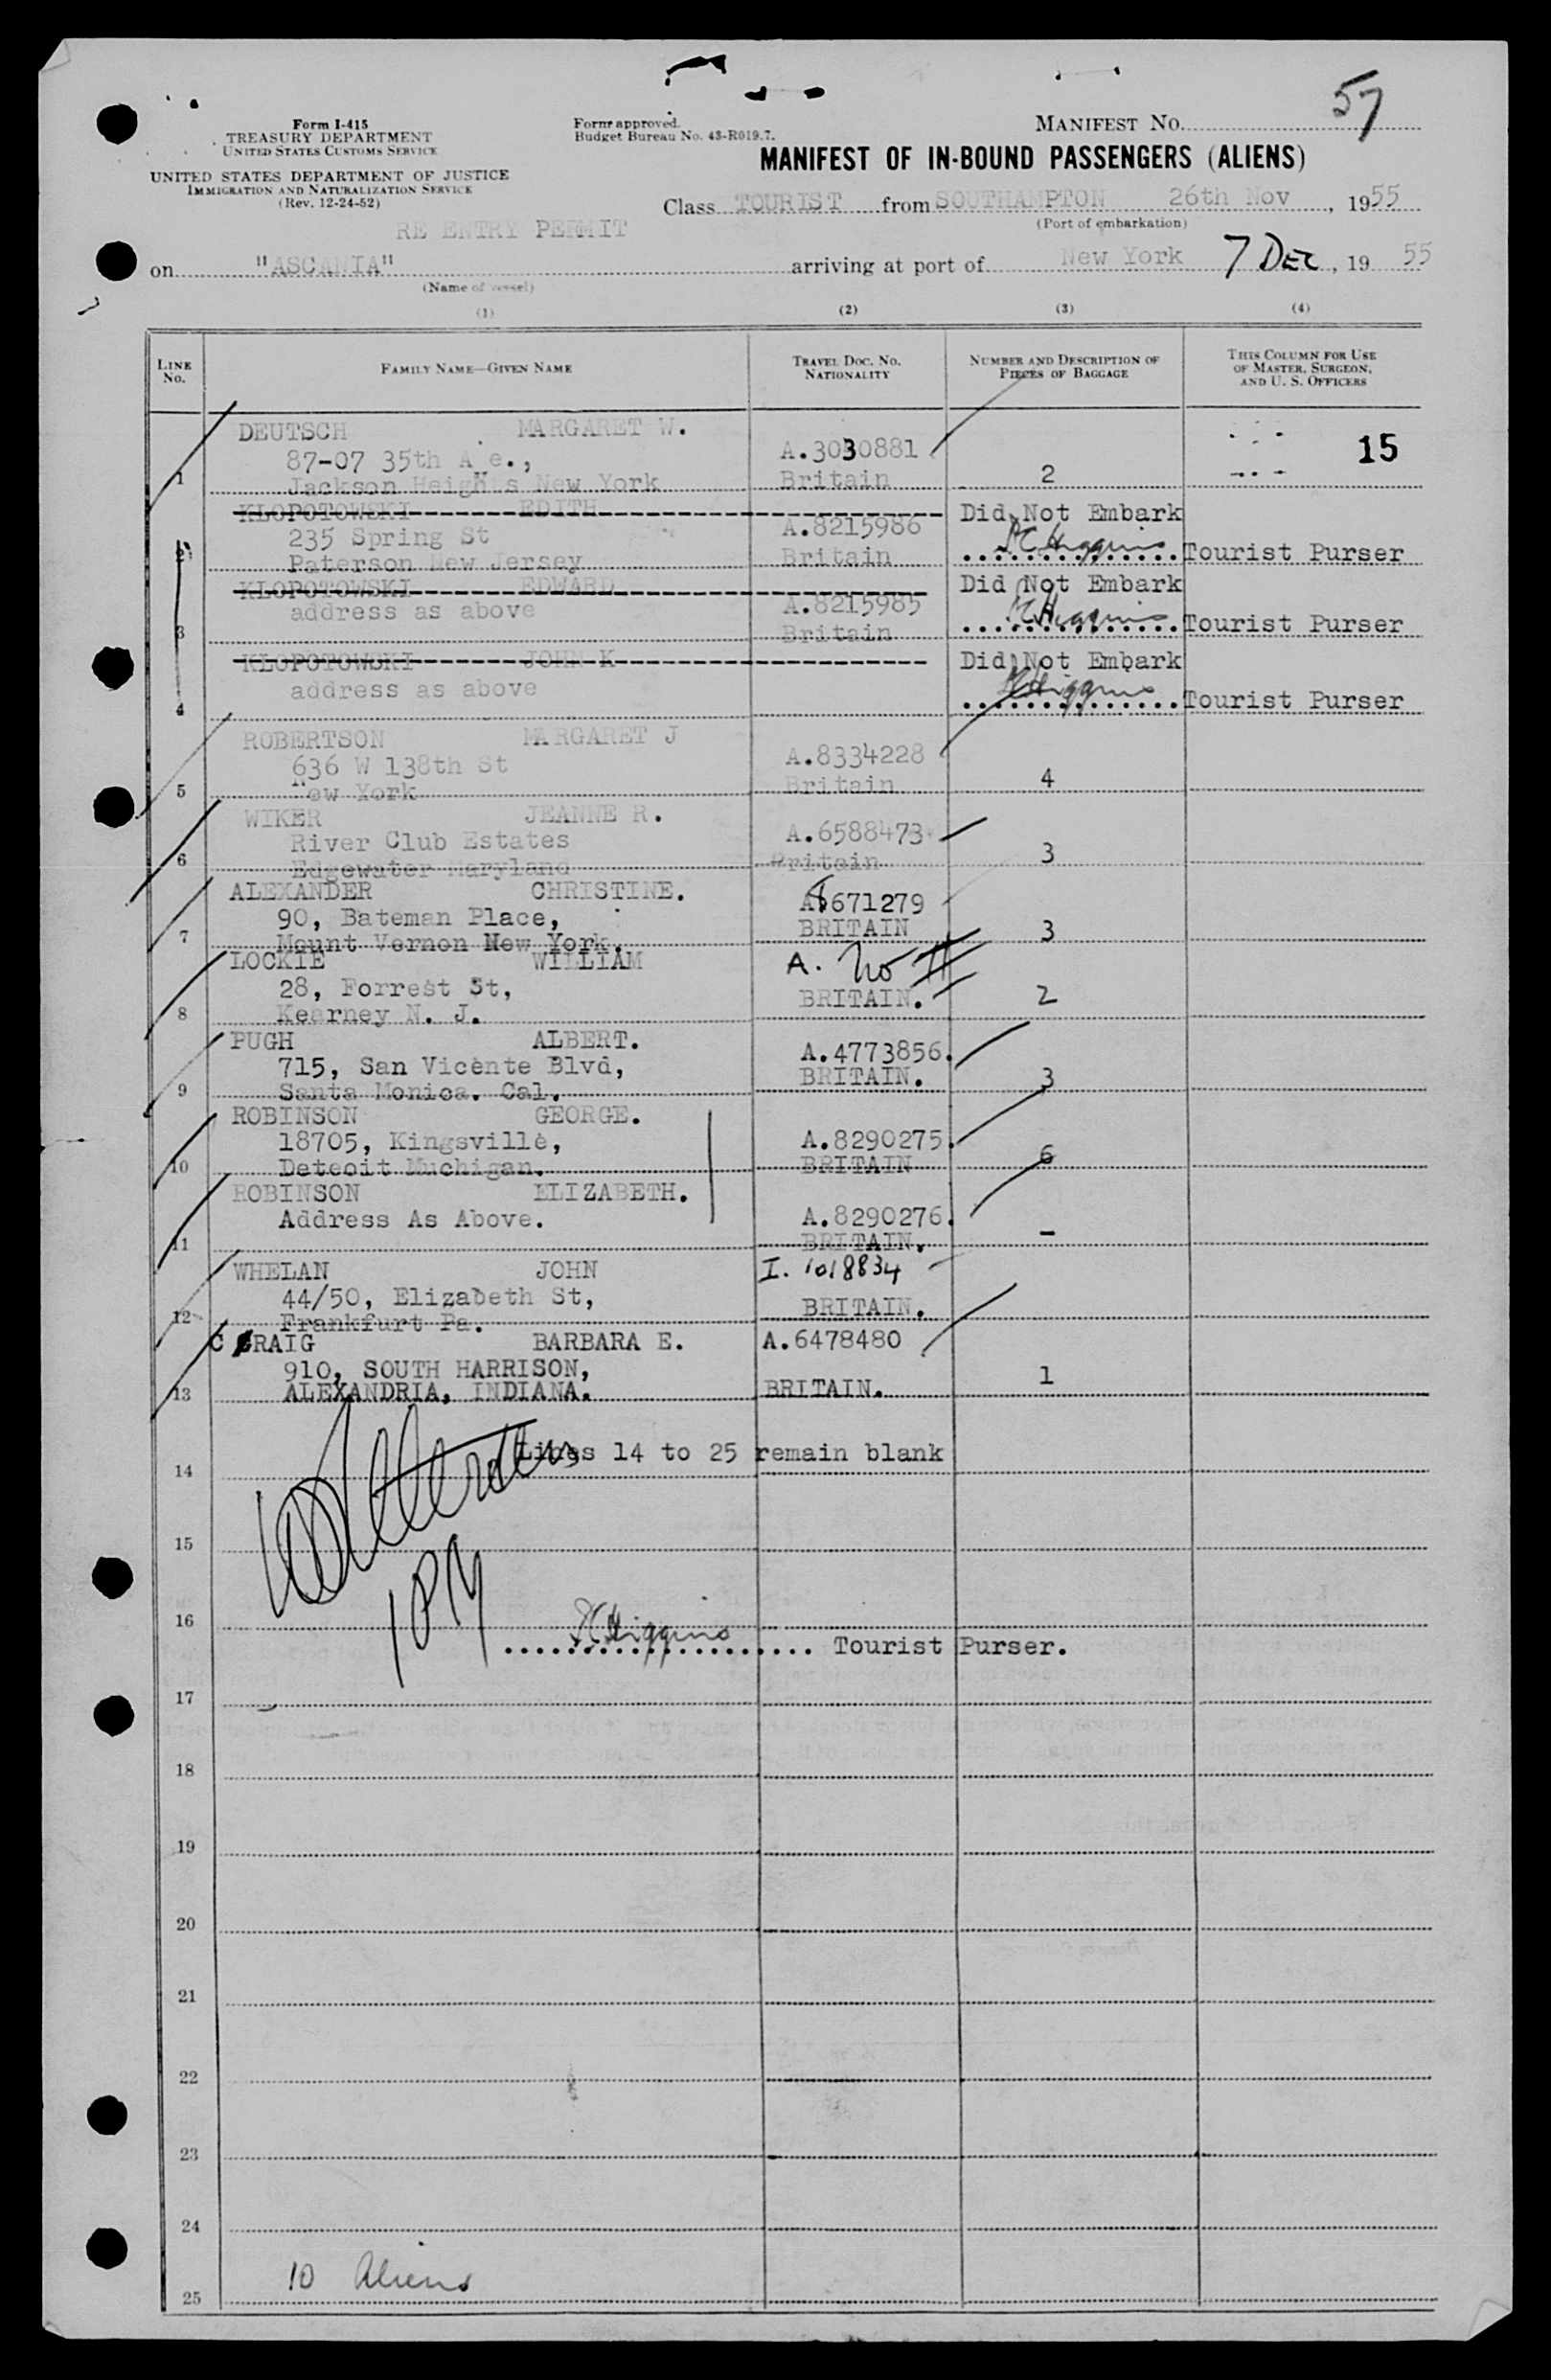 57
Form I-415
TREASURY DEPARTMENT
UNITED STATES CUSTOMS SERVICE
UNITED STATES DEPARTMENT OF JUSTICE
IMMIGRATION AND NATURALIZATION SERVICE
(Rev. 12-24-52)
Form approved.
Budget Bureau No. 43-R019.7.
MANIFEST NO.
MANIFEST OF IN-BOUND PASSENGERS (ALIENS)
Class TOURIST from SOUTHAMPTON 26th Nov , 1955
(Port of embarkation)
RE ENTRY PERMIT
on "ASCANIA" arriving at port of New York 7 DEC , 19 55
(Name of vessel)
(1) (2) (3) (4)
LINE NO. FAMILY NAME—GIVEN NAME TRAVEL DOC. NO. NATIONALITY NUMBER AND DESCRIPTION OF PIECES OF BAGGAGE THIS COLUMN FOR USE OF MASTER, SURGEON, AND U. S. OFFICERS
DEUTSCH MARGARET W.
87-07 35th A e., A.3030881 15
1 Jackson Heights New York Britain 2
KLOPOTOWSKI EDITH Did Not Embark
235 Spring St A.8215986
2 Paterson New Jersey Britain Higgins Tourist Purser
KLOPOTOWSKI EDWARD Did Not Embark
address as above A.8215985
3 Britain Higgins Tourist Purser
KLOPOTOWSKI JOHN K Did Not Embark
address as above
4 Higgins Tourist Purser
ROBERTSON MARGARET J
636 W 138th St A.8334228
5 New York Britain 4
WIKER JEANNE R.
River Club Estates A.6588473
6 Edgewater Maryland Britain 3
ALEXANDER CHRISTINE.
90, Bateman Place, A8671279
7 Mount Vernon New York. BRITAIN 3
LOCKIE WILLIAM A. No #
28, Forrest St, BRITAIN. 2
8 Kearney N. J.
PUGH ALBERT.
715, San Vicente Blvd, A.4773856.
9 Santa Monica. Cal. BRITAIN. 3
ROBINSON GEORGE.
18705, Kingsville, A.8290275.
10 Deteoit Muchigan. BRITAIN 6
ROBINSON ELIZABETH.
Address As Above. A.8290276.
11 BRITAIN. -
WHELAN JOHN I. 1018834
44/50, Elizabeth St, BRITAIN.
12 Frankfurt Pa.
C RAIG BARBARA E. A.6478480
910, SOUTH HARRISON,
13 ALEXANDRIA, INDIANA. BRITAIN. 1
14 Lines 14 to 25 remain blank
15
16
Higgins Tourist Purser.
17
18
19
20
21
22
23
24
25 10 Aliens